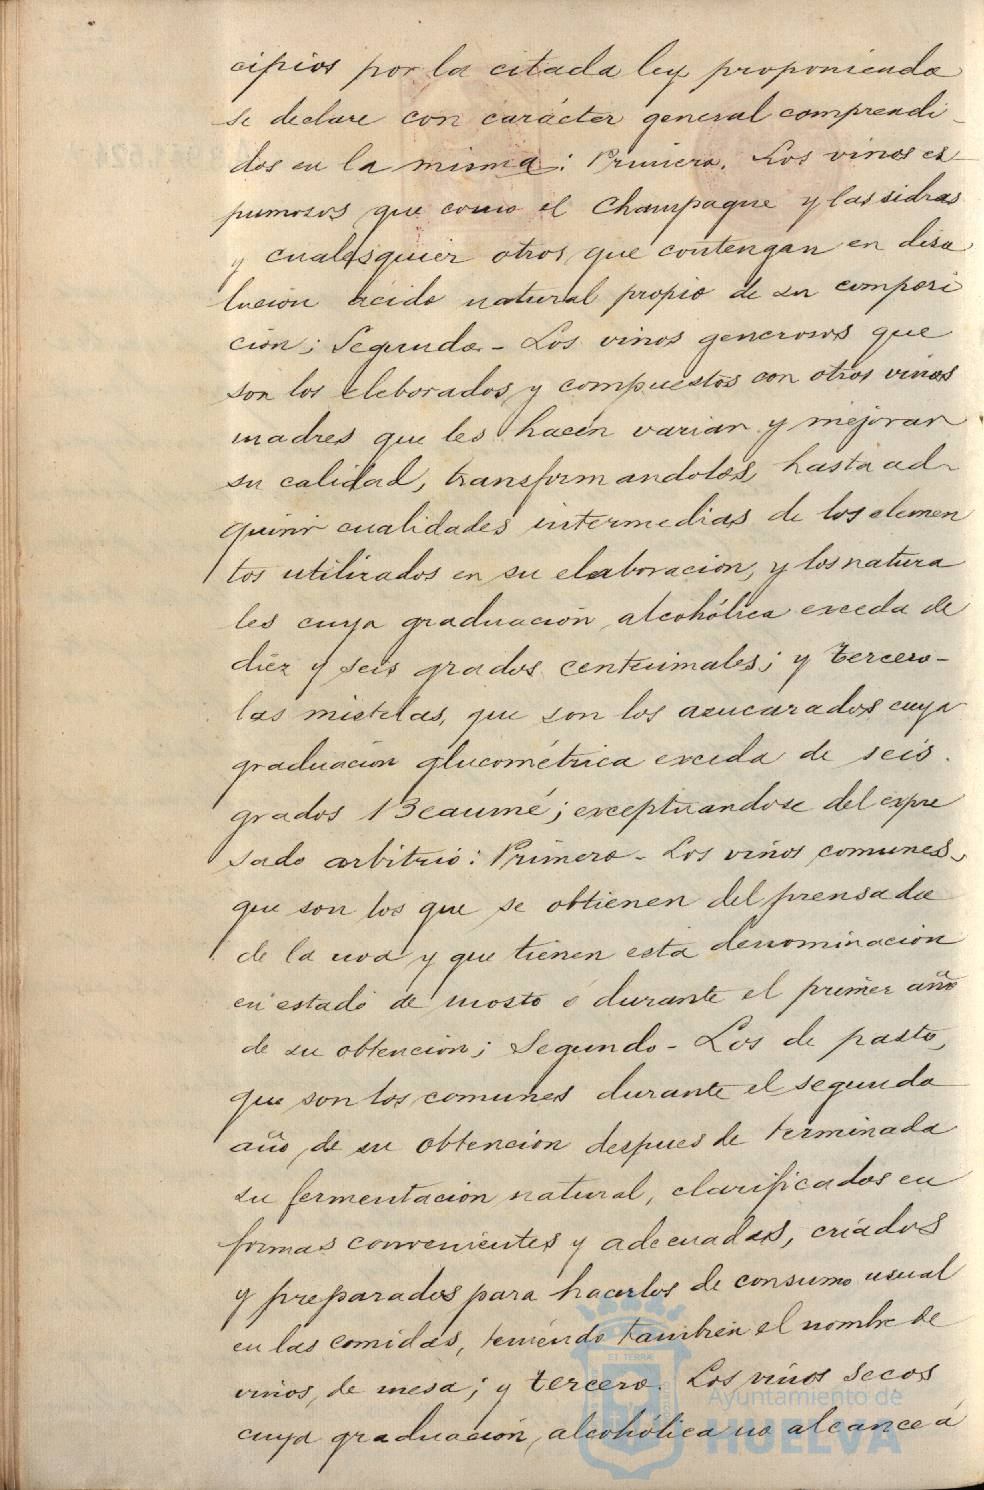 cipios por la citada ley proponiendo
se declare con carácter general comprendi-
dos en la misma: Primero. Los vinos es-
pumosos que como el Champagne y las sidras
y cualesquier otros que contengan en diso
lución ácido natural propio de su composi
ción; Segundo - Los vinos generosos que
son los eleborados y compuestos con otros vinos
madres que les hacen variar y mejorar
su calidad, transformandolos, hasta ad-
quirir cualidades intermedias de los elemen
tos utilizados en su elaboracion, y los natura
les cuya graduación alcohólica exceda de
diez y seis grados centesimales; y tercero -
las mistelas, que son los azucarados cuya
graduación glucométrica exceda de seis
grados Beaumé; exceptuandose del expre
sado arbitrio: Primero - Los vinos comunes,
que son los que se obtienen del prensado
de la uva y que tienen esta denominación
en estado de mosto ó durante el primer año
de su obtención; Segundo - Los de pasto,
que son los comunes durante el segundo
año de su obtención despues de terminada
su fermentación natural, clarificados en
formas convenientes y adecuadas, criados
y preparados para hacerlos de consumo usual
en las comidas, teniendo tambien el nombre de
vinos de mesa; y tercero. Los vinos secos
cuya graduación alcohólica no alcance á
ET TERRÆ
Ayuntamiento de
HUELVA